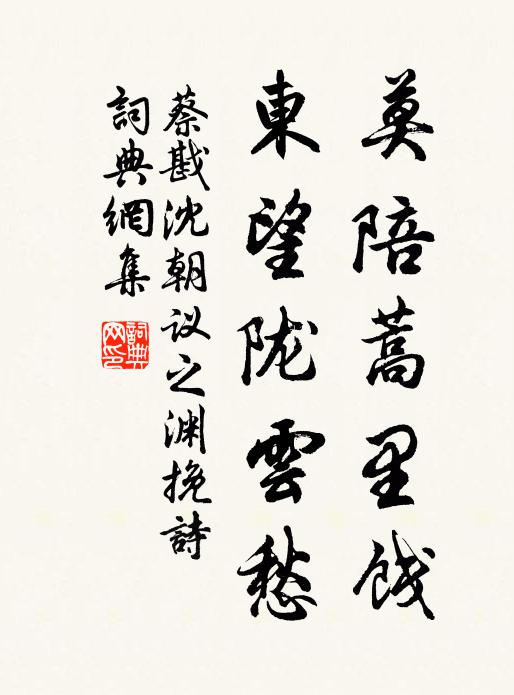 莫陪蒿里餞
東望陇雲愁
蔡戡沈朝议之渊挽詩
詞典網集
詞典网印